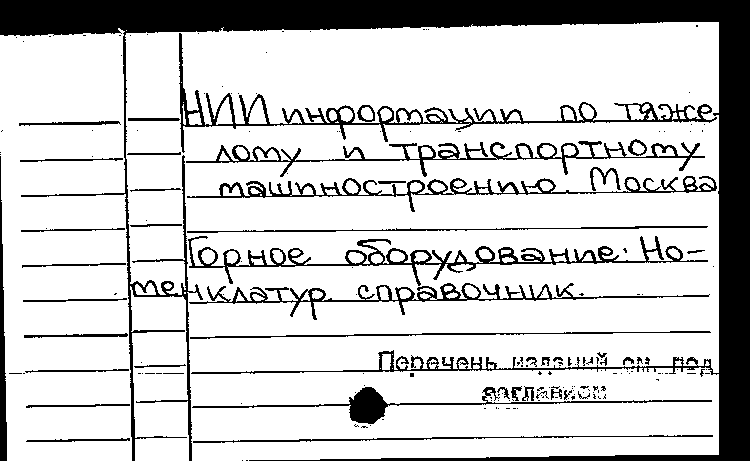 НИИ информации по тяже-
лому и транспортному
машиностроению. Москва
Горное оборудование. Но-
менклатур. справочник.
Перечень изданий см. под
заглавием